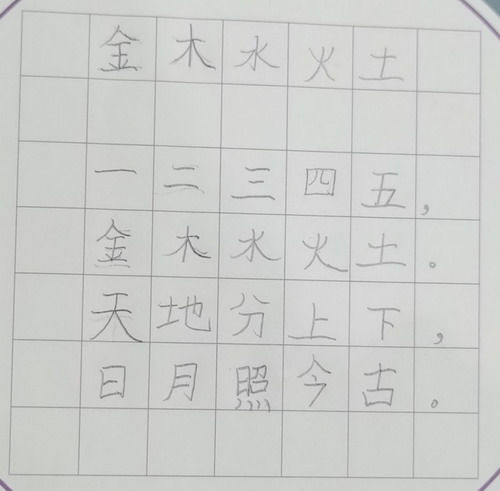 金木水火土
一二三四五，
金木水火土。
天地分上下，
日月照今古。